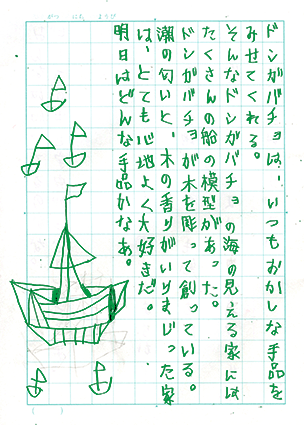 ドンガバチョは、いつもおかしな手品を
みせてくれる。
そんなドンガバチョの海の見える家には
たくさんの船の模型があった。
ドンガバチョが木を彫って創っている。
潮の匂いと、木の香りがいりまじった家
は、とても心地よく大好きだ。
明日はどんな手品かなあ。